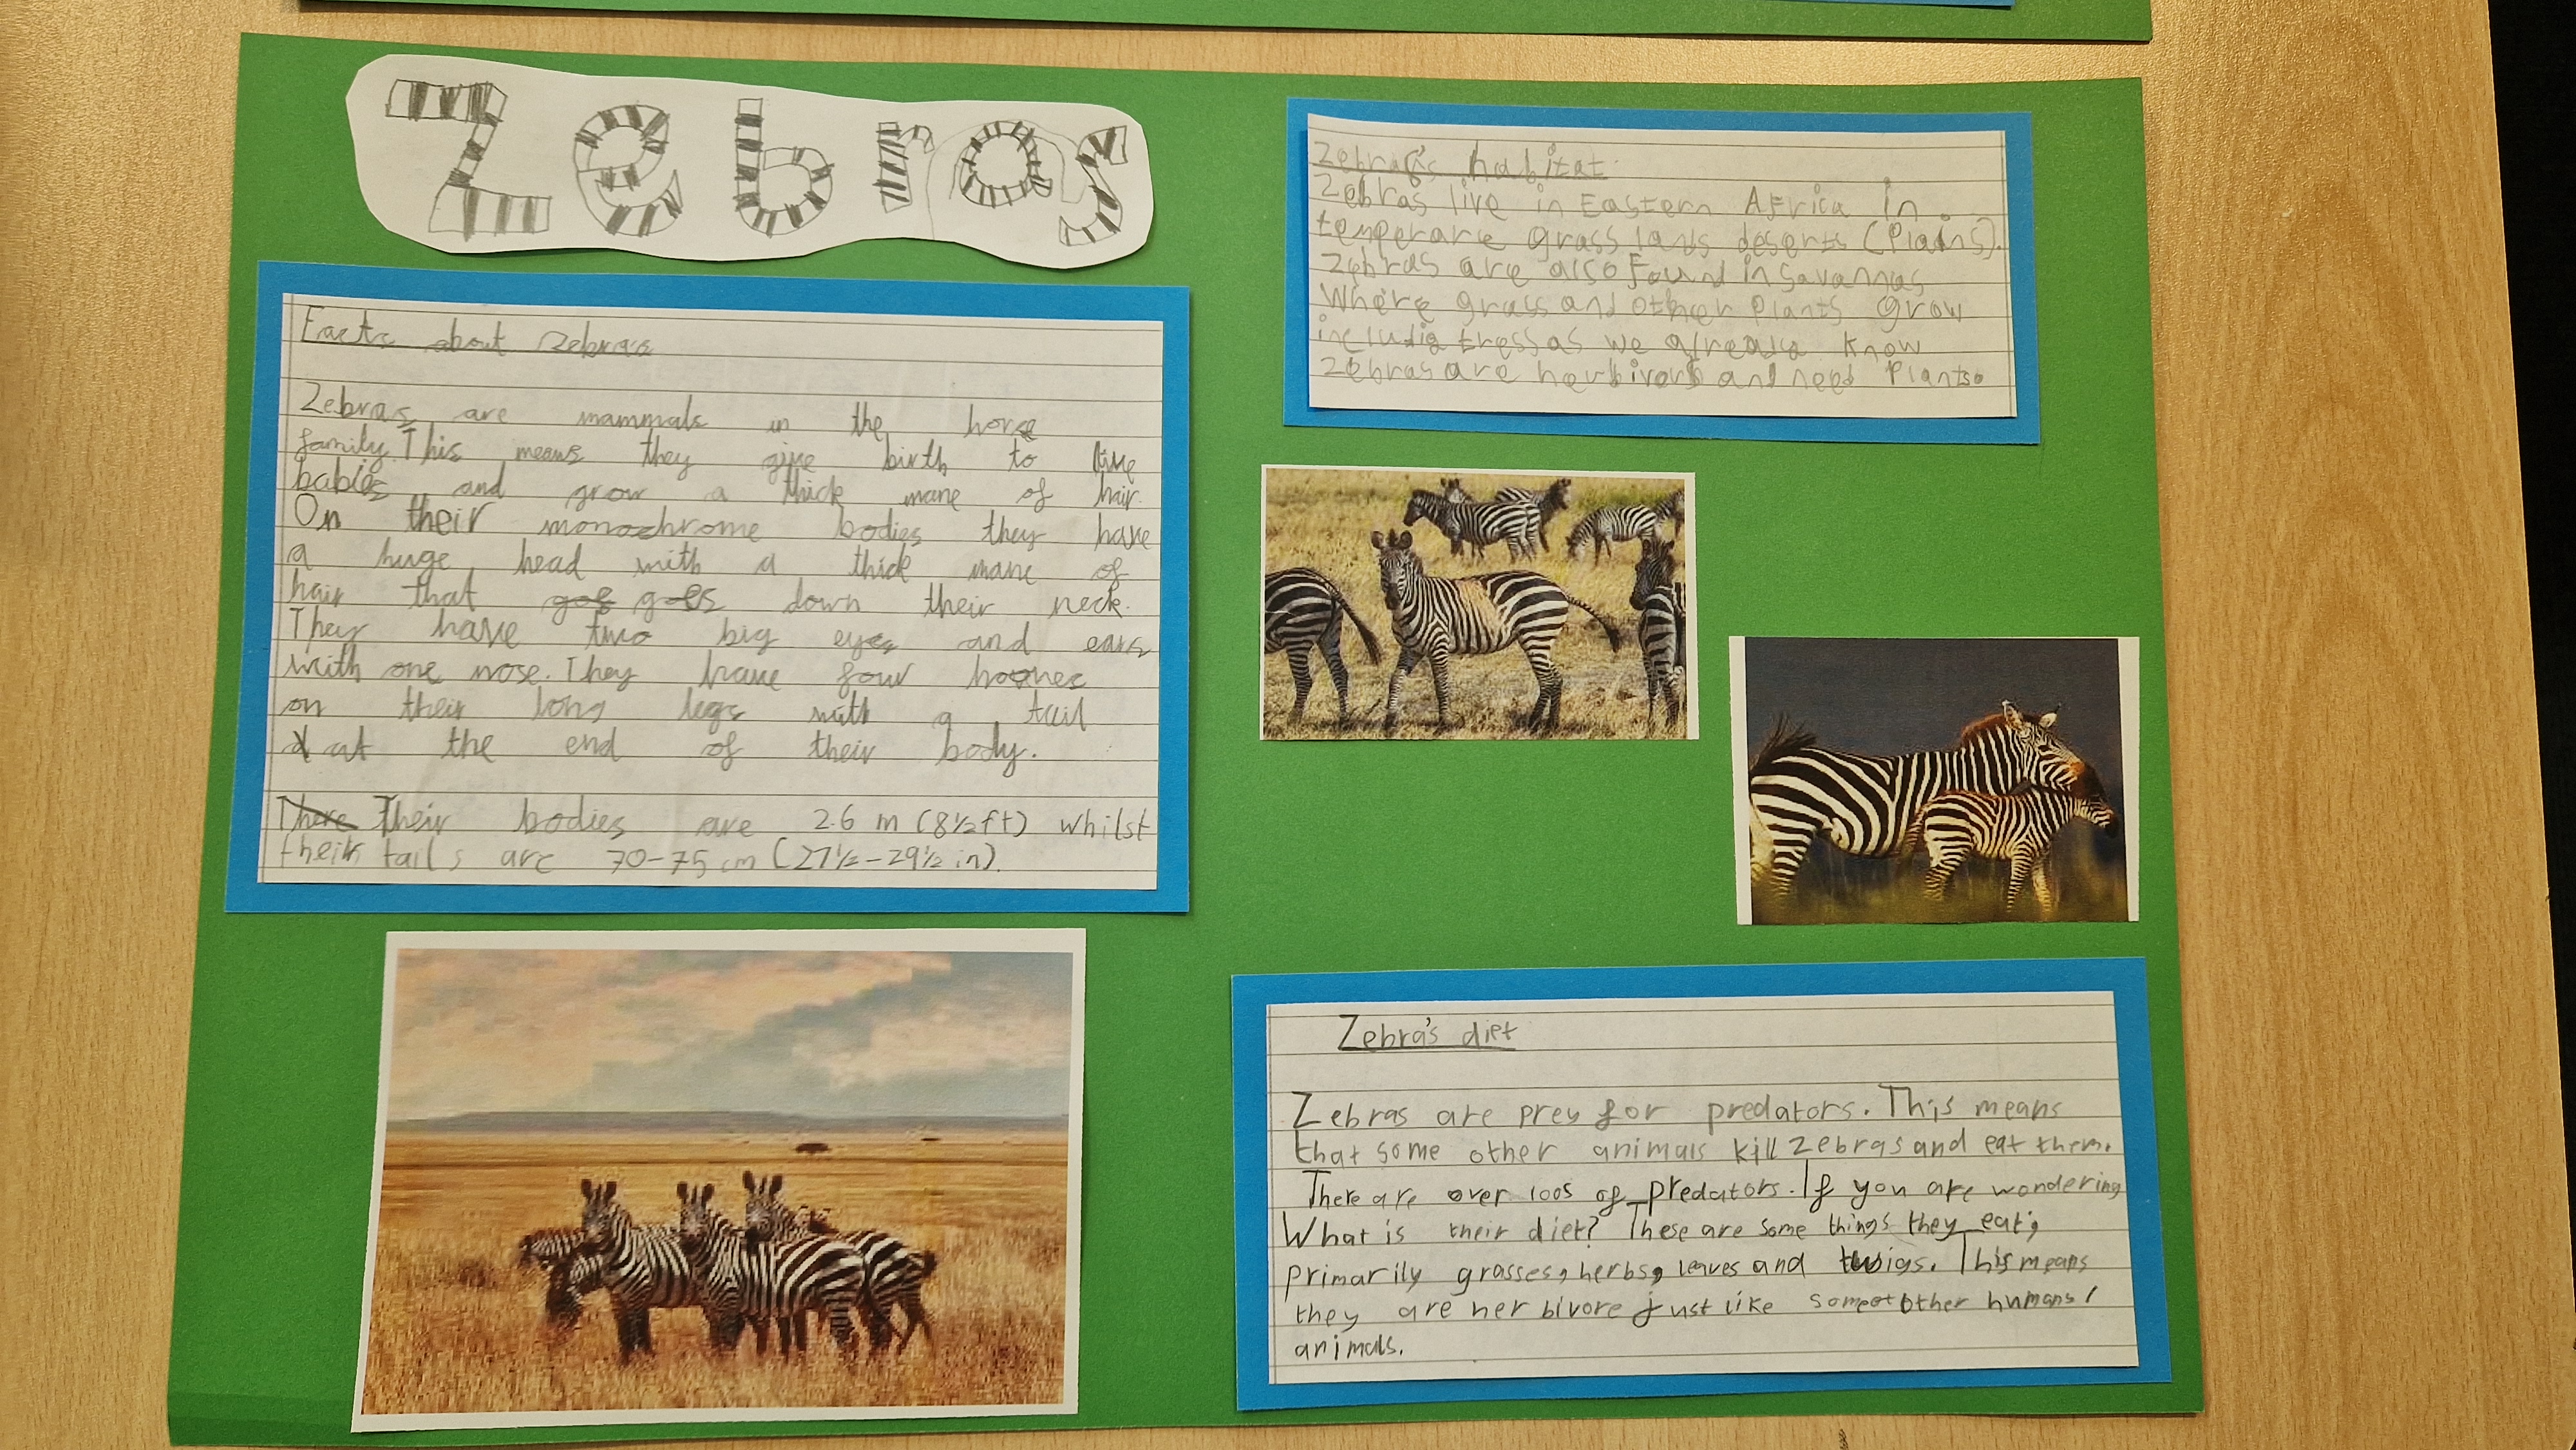 Zebras
Facts about Zebra's
Zebras are mammals in the horse
family. This means they give birth to live
babies and grow a thick mane of hair.
On their monochrome bodies they have
a huge head with a thick mane of
hair that goe goes down their neck.
They have two big eyes and ears
with one nose. They have four hooves
on their long legs with a tail
at the end of their body.
There Their bodies are 2.6 m (8½ft) whilst
their tails are 70-75cm (27½-29½ in).
Zebras's habitat
Zebras live in Eastern Africa in
temperare grass lands deserts (Plains).
Zebras are also Found in Savannas
Where grass and other Plants grow
includig tress as we already know
Zebras are herbivors and need Plants.
Zebra's diet
Zebras are prey for predators. This means
that some other animals kill zebras and eat them.
There are over 100s of predators. If you are wondering
What is their diet? These are some things they eat;
primarily grasses, herbs, leaves and twigs. This means
they are herbivore just like some other humans/
animals.